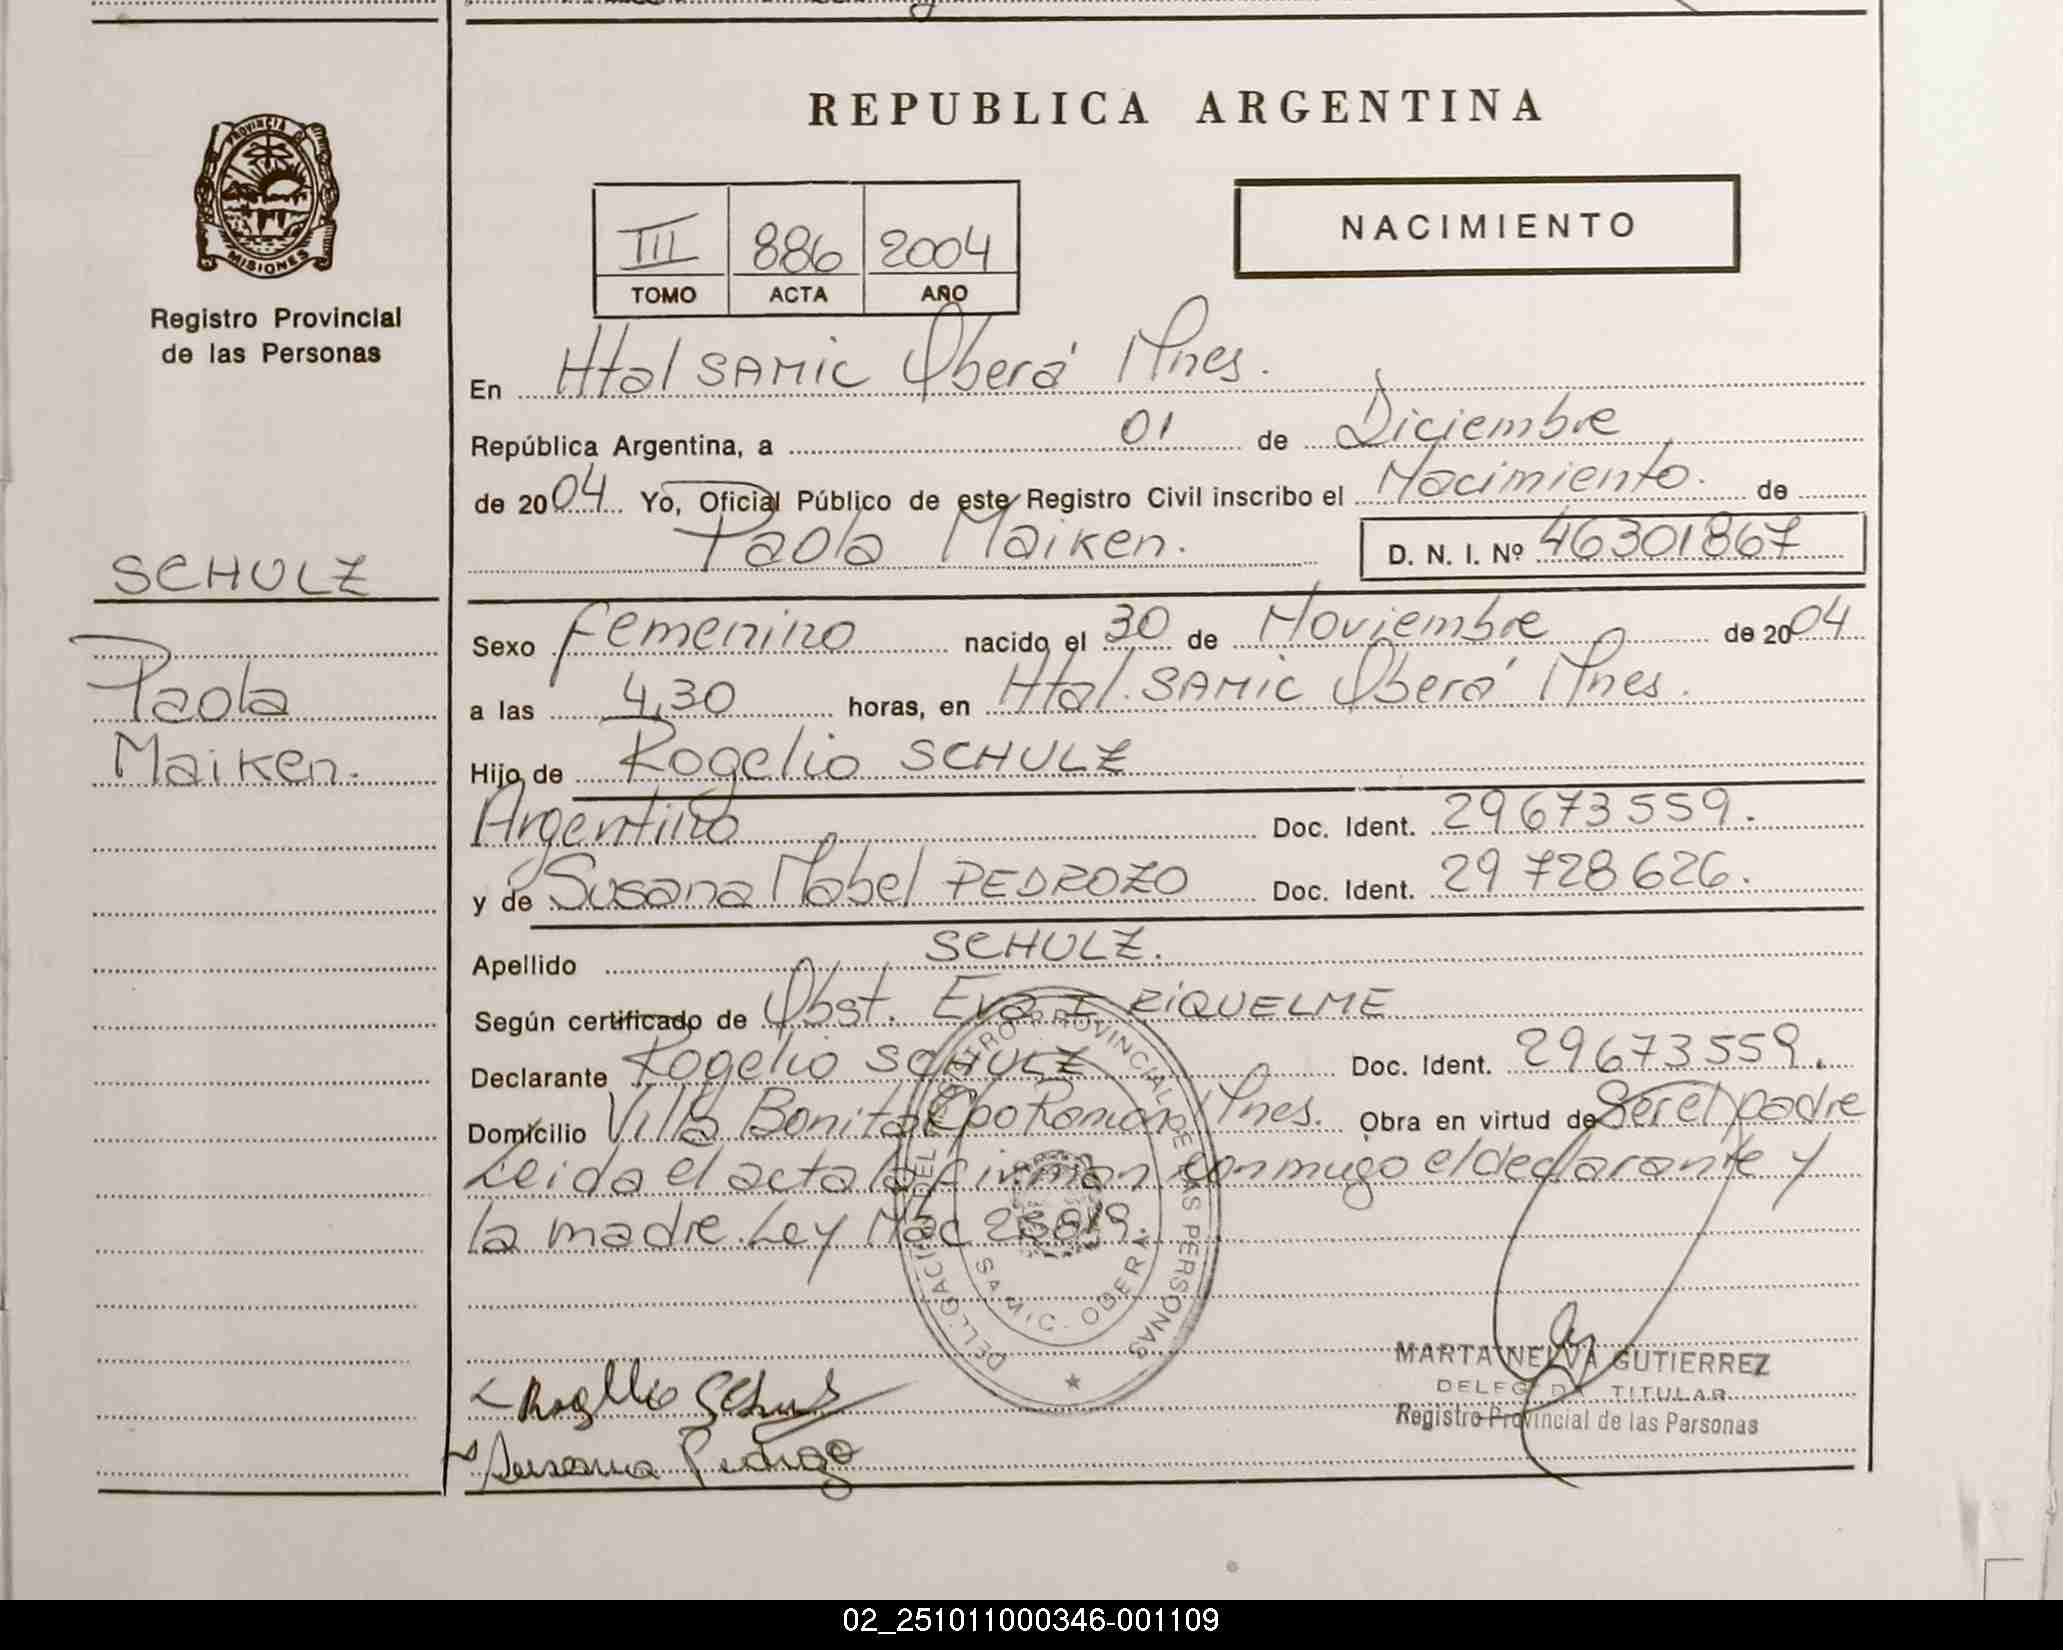 REPUBLICA ARGENTINA
PROVINCIA DE
MISIONES
Registro Provincial
de las Personas
III 886 2004
TOMO ACTA AÑO
NACIMIENTO
En Htal SAMIC Oberá Mnes.
República Argentina, a 01 de Diciembre
de 2004 Yo, Oficial Público de este Registro Civil inscribo el Nacimiento. de
Paola Maiken. D. N. I. Nº 46301867
SCHULZ
Paola
Maiken.
Sexo femenino nacido el 30 de Noviembre de 2004
a las 4,30 horas, en Htal. SAMIC Oberá Mnes.
Hijo de Rogelio SCHULZ
Argentino Doc. Ident. 29673559.
y de Susana Mabel PEDROZO Doc. Ident. 29728626.
Apellido SCHULZ.
Según certificado de Obst. Eva I RIQUELME
Declarante Rogelio SCHULZ Doc. Ident. 29673559.
Domicilio Villa Bonita Cpo Ramón Mnes. Obra en virtud de Ser el padre
Leida el acta la firman conmugo el declarante y
la madre. Ley Nac 23819.
REGISTRO PROVINCIAL DE LAS PERSONAS
SAMIC. OBERA
Rogelio Schulz
Susana
MARTA NELVA GUTIERREZ
DELEGADA TITULAR
Registro Provincial de las Personas
02_251011000346-001109